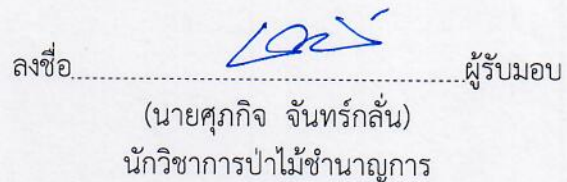 ลงชื่อ........................................................ผู้รับมอบ
(นายศุภกิจ จันทร์กลั่น)
นักวิชาการป่าไม้ชำนาญการ